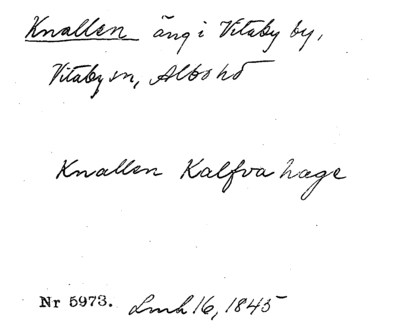 Knallen äng i Vitaby by,
Vitaby sn, Albo hd
Knallen Kalfva hage
Nr 5973. Lmh 16, 1845